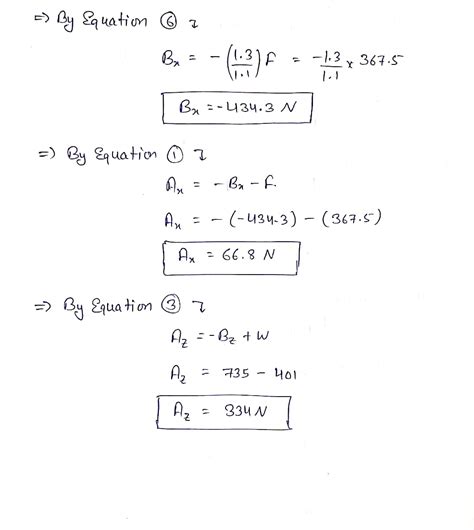 ⇒ By Equation ⑥ ↴
Bx = - (1.3/1.1) F = -1.3/1.1 × 367.5
Bx = -434.3 N
⇒ By Equation ① ↴
Ax = - Bx - F.
Ax = - (-434.3) - (367.5)
Ax = 66.8 N
⇒ By Equation ③ ↴
Az = -Bz + W
Az = 735 - 401
Az = 334 N